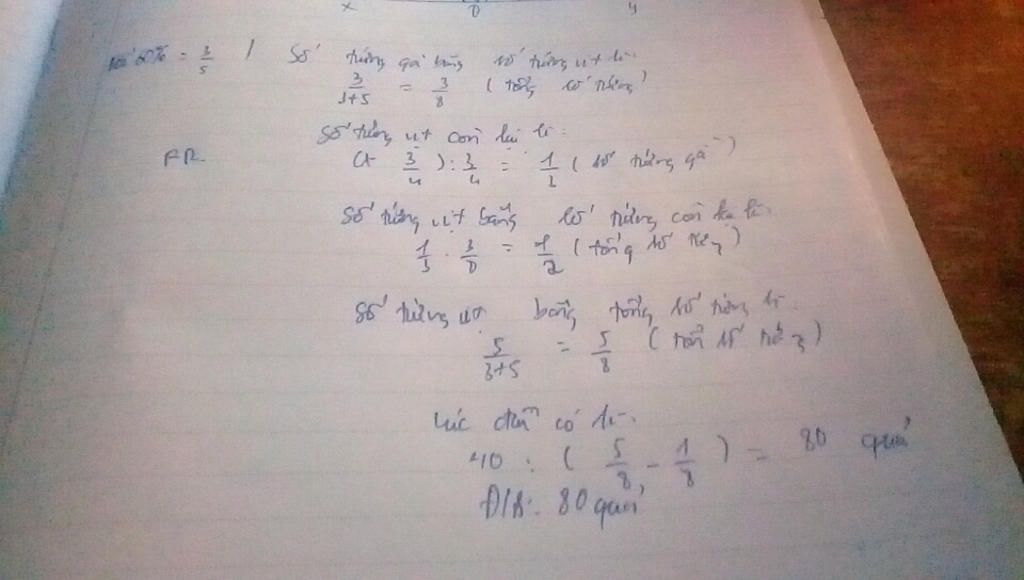 x 0 y
60% = 3/5 / Số trứng gà bằng số trứng vịt là:
3/3+5 = 3/8 (tổng số trứng)
Số trứng vịt còn lại là:
3/4 ) : 3/4 = 1/3 ( số trứng gà )
Số trứng vịt bằng số trứng còn lại là:
1/3 . 3/8 = ( tổng số trứng )
Số trứng vịt bằng tổng số trứng là
5/3+5 = 5/8 ( tổng số trứng )
Lúc đầu có là:
40 : ( 5/8 - 1/8 ) = 80 quả
Đ/S: 80 quả